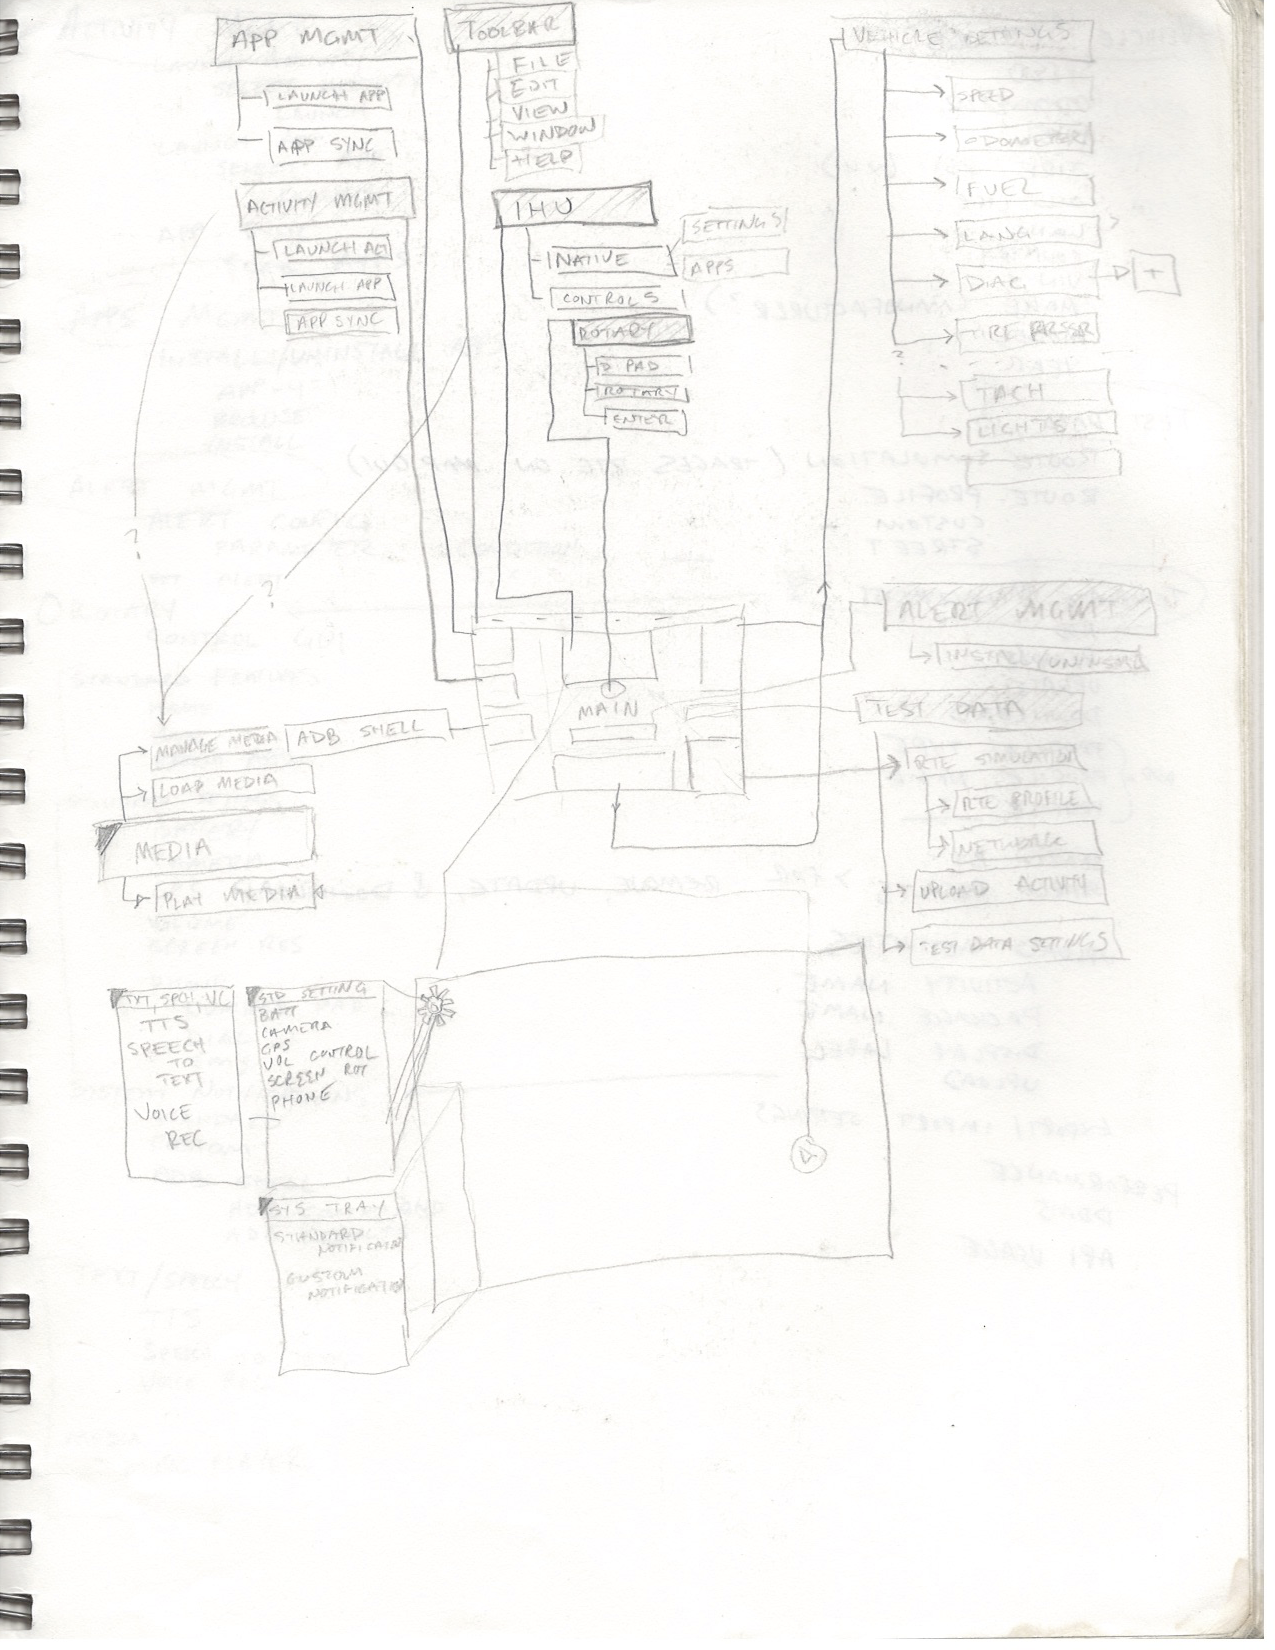 APP MGMT
LAUNCH APP
APP SYNC
ACTIVITY MGMT
LAUNCH ACT
LAUNCH APP
APP SYNC
TOOLBAR
FILE
EDIT
VIEW
WINDOW
HELP
IHU
NATIVE
SETTINGS
APPS
CONTROLS
ROTARY
D PAD
ROTARY
ENTER
VEHICLE SETTINGS
SPEED
ODOMETER
FUEL
DIAG
+
TIRE PRSSR
?
TACH
LIGHTS
?
?
ALERT MGMT
INSTALL/UNINSTALL
MAIN
TEST DATA
RTE SIMULATION
RTE PROFILE
NETWORK
UPLOAD ACTIVITY
TEST DATA SETTINGS
MANAGE MEDIA
ADB SHELL
LOAD MEDIA
MEDIA
PLAY MEDIA
TTS
SPEECH
TO
TEXT
VOICE
REC
STD SETTING
BATT
CAMERA
GPS
VOL CONTROL
SCREEN ROT
PHONE
SYS TRAY
STANDARD
NOTIFICATION
CUSTOM
NOTIFICATION